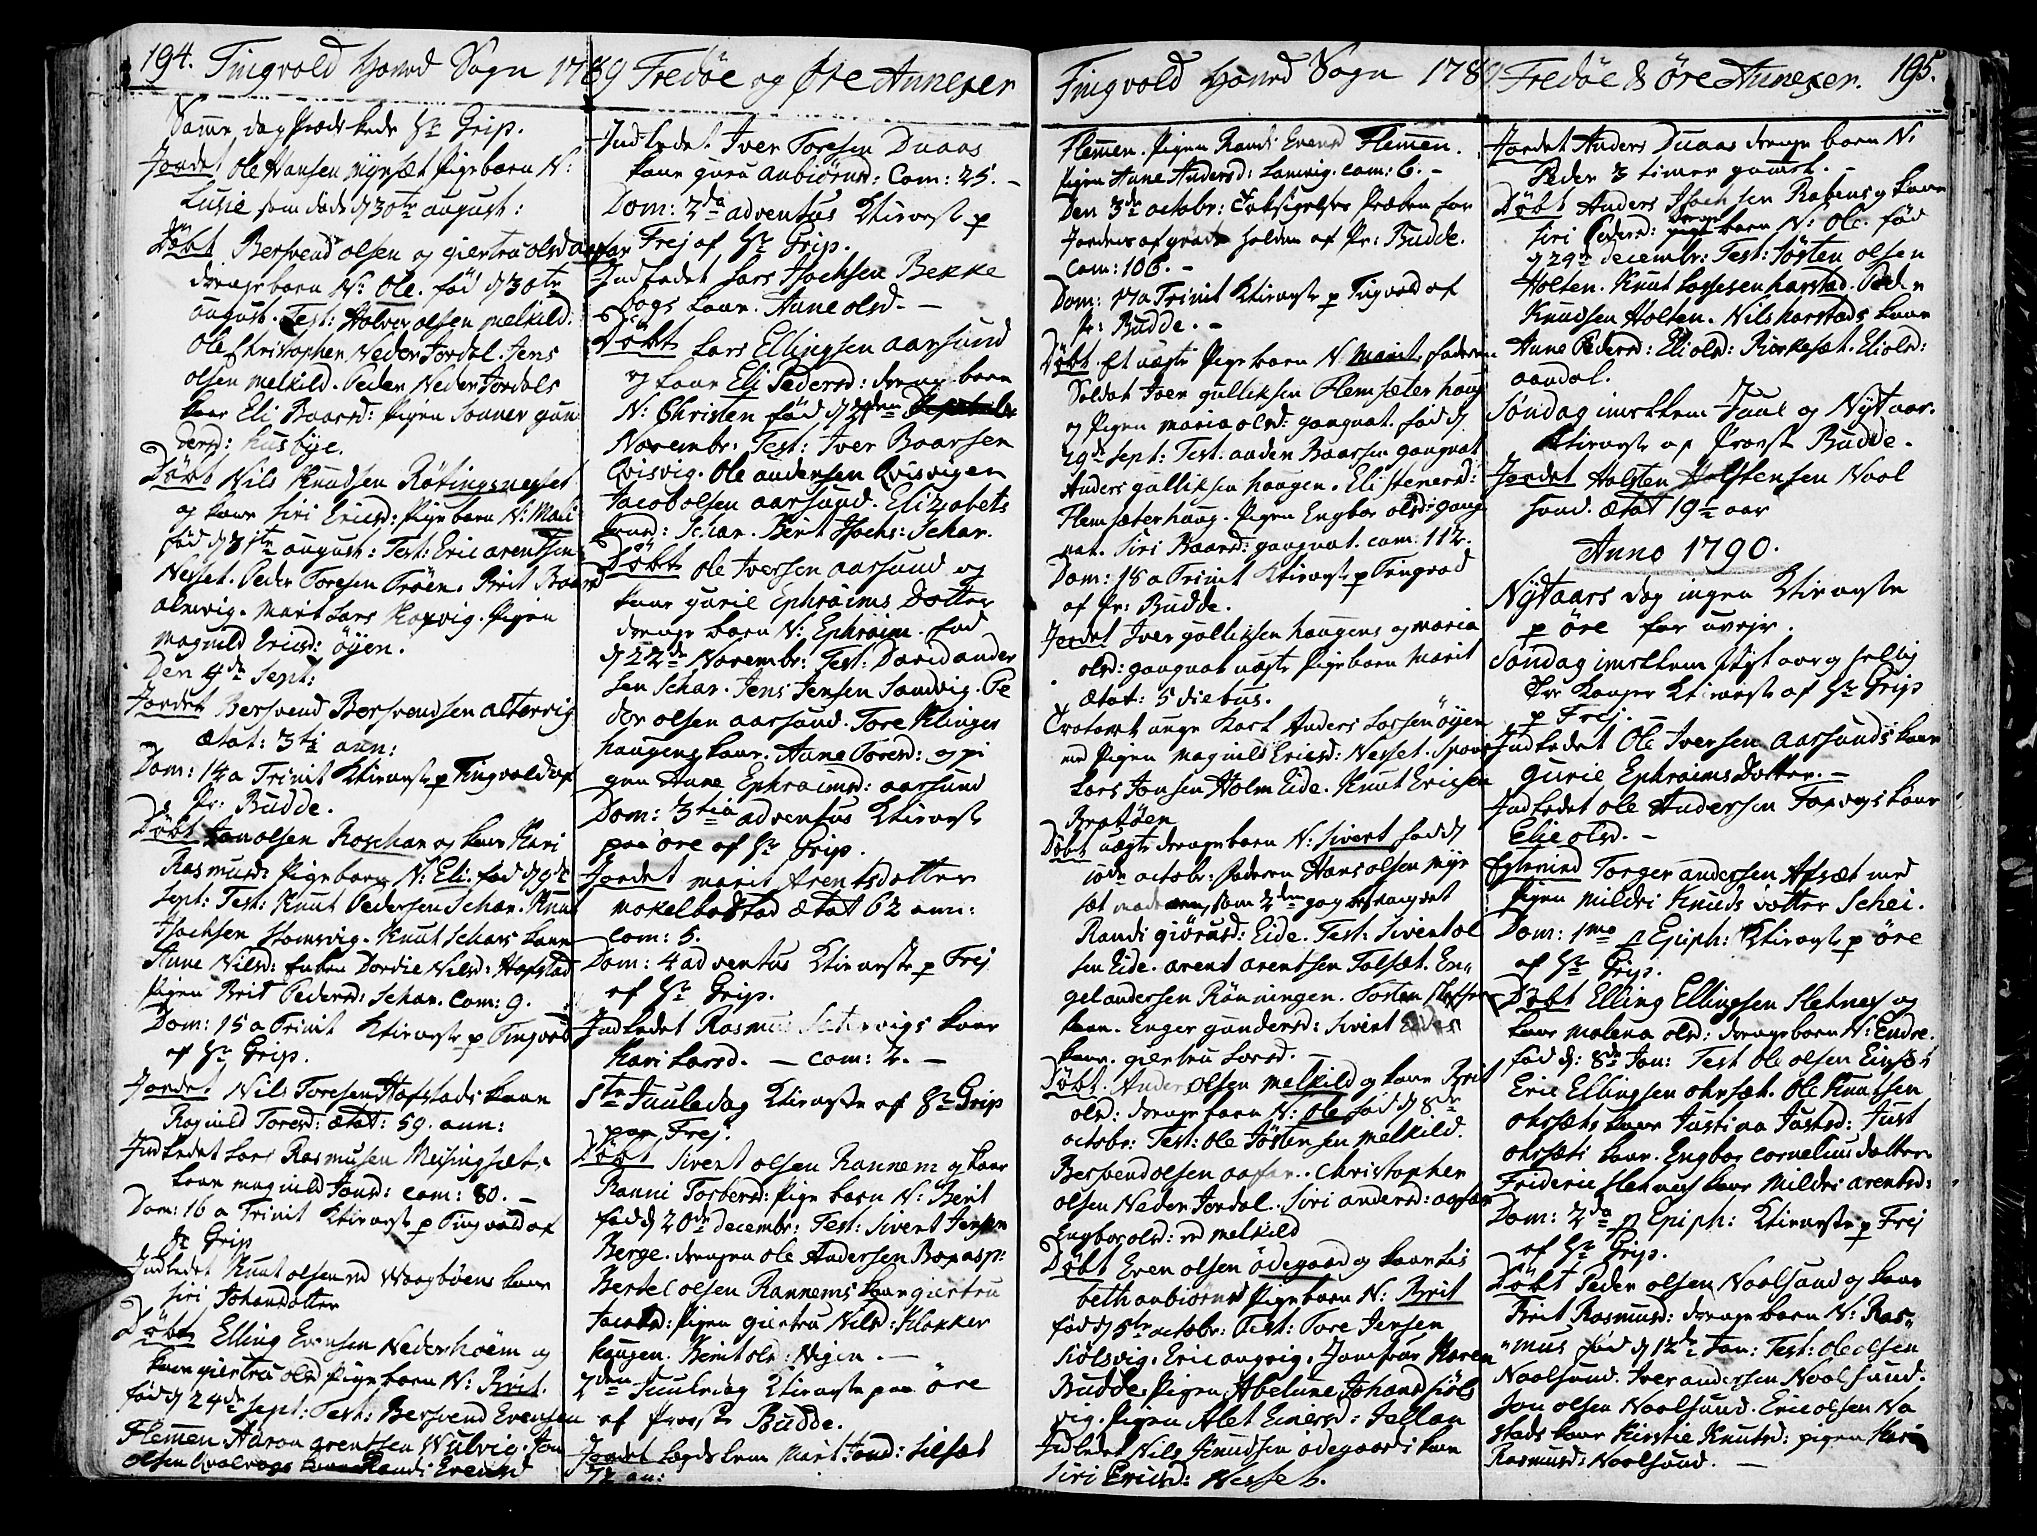 194. Tingvold Hoved Sogn 1789 Fredöe og Öre Annexer
Samme dag Prædikede Hr Grip.
Jordet Ole Hansen Myrsæt Pigebarn N:
Lusie som døde d 30te august:
Döbt Bersvend olsen og giertru olsd aasfar
drengebarn N: Ole. fød d 30te
august. Test: Halvor olsen melkild.
Ole Christophers Neder Jordal. Jens
olsen melkild. Peder Neder Jordals
kone Eli Baarsd: Pigen Sonner gun
dersd: husbye.
Döbt Nils Knudsen Rötingsnesset
og kone Siri Ericsd: Pigebarn N: Mali
fød d 31te august: Test: Eric arentsen
Nesset. Peder Toresen Tröen. Brit Baarsd
alnvig. Marit Lars Kaxvig. Pigen
magnild Ericsd: öyen.
Den 4de Sept:
Jordet Bersvend Bersvendsen altervig
ætat: 3ti ann:
Dom: 14 a Trinit Ktieneste p Tingvold af
Pr: Budde.
Döbt Jon olsen Roschar og kone Kari
Rasmusd: Pigebarn N: Eli. fød d 9de
Sept: Test: Knut Pedersen Schar. Knut
Isachsen Stomsvig. Knut Schars kone
Anne Nilsd: Enken Dordie Nilsd: Hofstad
Pigen Brit Pedersd: Schar. Com: 9.
Dom: 15 a Trinit Ktieneste p Tingvold
af Hr Grip.
Jordet Nils Toresen Hafstads kone
Ragnild Toresd: ætat: 59. ann:
Indledet Lars Rasmusen Meisingsæts
kone magnild Jonsd: com: 80. –
Dom: 16 a Trinit Ktieneste p Tingvold af
Hr Grip
Indledet Knut olsen Waagböens kone
Siri Johansdotter
Döbt Elling Evensen Nederhoem og
kone giertru olsd Pigebarn N: Brit.
fød d 24de Sept: Test: Bersvend Evensen
Flemen Aaron arentsen Wulvig. Jon
olsen Randi Evensd
Indledet. Iver Toresen Duaas
kone guru anbiörnsd: Com: 25. –
Dom: 2da adventus Ktieneste p
Frej af Hr Grip.
Indledet Lars Isachsen Bekke
Dogs kone. Anne olsd. –
Döbt Lars Ellingsen aarsund
og kone Eli Pedersd: drenge barn
N: Christen fød d 21den
Novembr: Test: Iver Baarsen
Qvisvig. Ole andersen Qvisvigen
Jacob olsen aarsund. Elizabets
Jensd: Schar. Berit Isachs: Schar.
Döbt Ole Iversen aarsund og
kone gurie Ephraims Dotter
drenge barn N: Ephraim. fød
d 22de Novembr: Test: David ander
sen Schar. Jens Jensen Sandvig. Pe
der olsen aarsund. Tore Klinges
haugens kone. Anne Toresd: og pi
gen Anne Ephraimsd: aarsund
Dom: 3tia adventus Ktieneste
paa öre af Hr Grip.
Jordet marit Arentsdotter
Mokelbostad ætat 62 ann:
com: 5.
Dom: 4 adventus Ktieneste p Frej
af Hr Grip.
Indledet Rasmus Setervigs kone
Kari Larsd. – com: 2. –
1ste Juuledag Ktieneste af Hr Grip
paa Frej.
Döbt Sivert olsen Rannem og kone
Ranni Torbersd: Pige barn N: Berit
fød d 20de decembr: Test: Sivert Jensen
Berge. drengen ole Andersen Boxasp:
Bertel olsen Rannems kone giertru
Jacobsd: Pigen giertru Nilsd: Klokker
haugen. Berit olsd: Vigen. –
2den Juuledag Ktieneste paa öre
af Provst Budde.
Jordet Legdslem Marit Jonsd: Silsæt
72 an:
Tingvold Hoved Sogn 1789 Fredöe & Öre Annexer. 195.
Flemen. Pigen Randi Evensd Flemen.
Pigen Anne Andersd: Lamvig. com: 6. –
Den 3de octobr: Taksigelses Præken for
Jordens afgröde holden af Pr: Budde.
Com: 106. –
Dom: 17 a Trinit Ktieneste p Tingvold af
Pr: Budde. –
Döbt Et uægte Pigebarn N: Marit. faderen
Soldat Iver gulliksen Flemsæterhaug
og Pigen maria olsd: gangnat. fød d
29de Sept: Test. anders Baarsen gangnat
Anders gulliksen haugen. Eli Stenersd:
Flemsæterhaug. Pigen Engbor olsd: gang
nat. Siri Baarsd: gangnat. com: 112.
Dom: 18 a Trinit Ktieneste p Tingvold
af Pr: Budde.
Jordet Iver gulliksen haugens og maria
olsd: gangnat uægte Pigebarn Marit
ætat: 5 diebus.
Trolovet unge Karl Anders Larsen öyen
med Pigen magnild Ericsd: Nesset. Spons
Lars Jonsen Holm Eide. Knut Ericsen
Bratöen
Döbt uægte drengebarn N: Sivert fød d
10de octobr: Faderen Hans olsen Myr
sæt som 2den gang besvangret
Randi giörusd: Eide. Test: Sivert ol
sen Eide. arent arentsen Talset. En„
gel andersen Rönningen. Tosten
kone. Enger gundersd: Sivert Eides
kone. giertru Larsd.
Döbt. Anders olsen melkild og kone Brit
olsd: drengebarn N: ole fød d 8de
octobr: Test: Ole Jöstensen melkild.
Bersvend olsen aasfar. Christopher
olsen Neder Jordal. Siri andersd: aasfar
Engbor olsd: melkild
Döbt Even olsen ödegaard og kone Lis
beth anbiörnsd Pigebarn N: Brit
fød d 5te octobr: Test: Tore Jensen
Siölsvig. Eric angvig. Jomfrue Karen
Budde. Pigen Abelune Johansd Siöls
vig. Pigen Alet Einersd: Jellan
Indledet Nils Knudsen ödegaards kone
Siri Ericsd: Nesset.
Jordet Anders Duaas drenge barn N:
Peder 3 timer gamelt. –
Döbt Anders Isachsen Rakens og kone
Siri Pedersd: drenge barn N: Ole. fød
d 29de decembr: Test: Jösten olsen
Holten. Knut Lassesen harstad. Peder
Knudsen Holten. Nils harstads kone
Anne Pedersd: Eli olsd: Birkesæt. Eli olsd:
aandal.
Söndag imellem Juul og Nyt aar.
Ktieneste af Provst Budde.
Jordet Holsten Holstensen Naal
sund. ætat 19 aar
Anno 1790.
Nytaars dag ingen Ktieneste
p öre for uvejr.
Söndag imellem Nyt aar og hellig
Tre Konger Ktieneste af Hr Grip
p Frej. –
Indledet Ole Iversen aarsunds kone
gurie Ephraims Dotter. –
Indledet ole Andersen Farvigs kone
Elie olsd. –
Egteviede Torger andersen Afsæt med
Pigen Mildri Knuds dotter Schei.
Dom: 1ma p Epiph: Ktieneste p öre
af Hr Grip.
Döbt Elling Ellingsen Sletnes og
kone malena olsd: drengebarn N: Endre.
fød d: 8de Jan: Test ole olsen Einset
Eric Ellingsen ohrsæt. Ole Knutsen
ohrsæts kone Justina Justsd: Just
ohrsæts kone. Engbor cornelius dotter
Frideric Sletnes kone Mildri arentsd:
Dom: 2da p Epiph: Ktieneste p Frej
af Hr Grip.
Döbt Peder olsen Naalsund og kone
Brit Rasmusd: drenge barn N: Ras„
„mus fød d 12te Jan: Test: ole olsen
Naalsund. Iver andersen Naalsund.
Jon olsen Naalsund. Eric olsen Na
stads kone Kirstie Knutsd: pigen Kari
Rasmusd: Naalsund. –